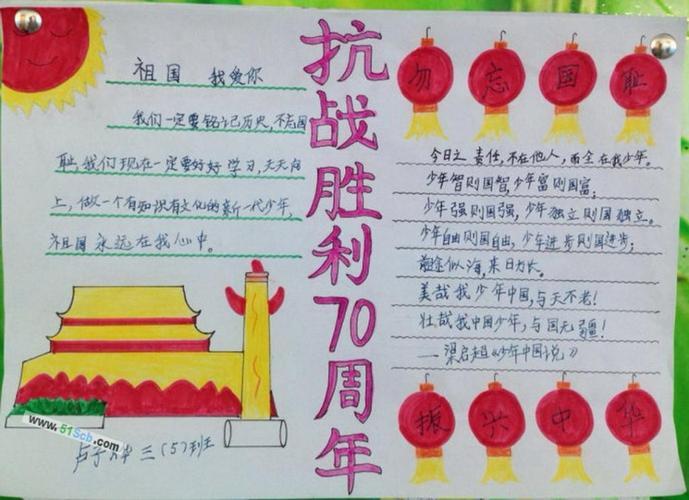 抗战胜利70周年
祖国 我爱你
我们一定要铭记历史,不忘国
耻,我们现在一定要好好学习,天天向
上,做一个有知识有文化的新一代少年,
祖国永远在我心中。
www.51Scb.com
三(5)班
勿忘国耻
今日之责任,不在他人,而全在我少年。
少年智则国智,少年富则国富;
少年强则国强,少年独立则国独立。
少年自由则国自由,少年进步则国进步;
前途似海,来日方长。
美哉我少年中国,与天不老!
壮哉我中国少年,与国无疆!
——梁启超《少年中国说》
振兴中华